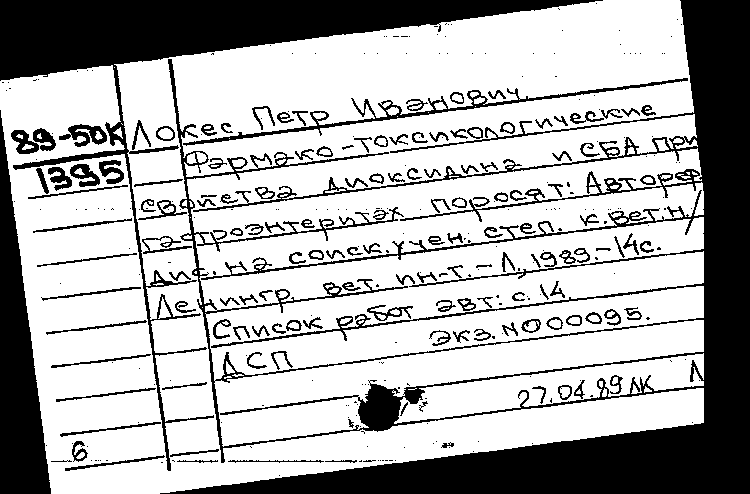 89-50К Локес, Петр Иванович.
1395 Фармако-токсикологические
свойства диоксидина и СБА при
гастроэнтеритах поросят: Автореф
дис. на соиск. учен. степ. к.вет.н./
Ленингр. вет. ин-т. - Л, 1989. - 14с.
Список работ авт: с. 14.
ДСП экз. N000095.
27.04.89 ЛК Л
6